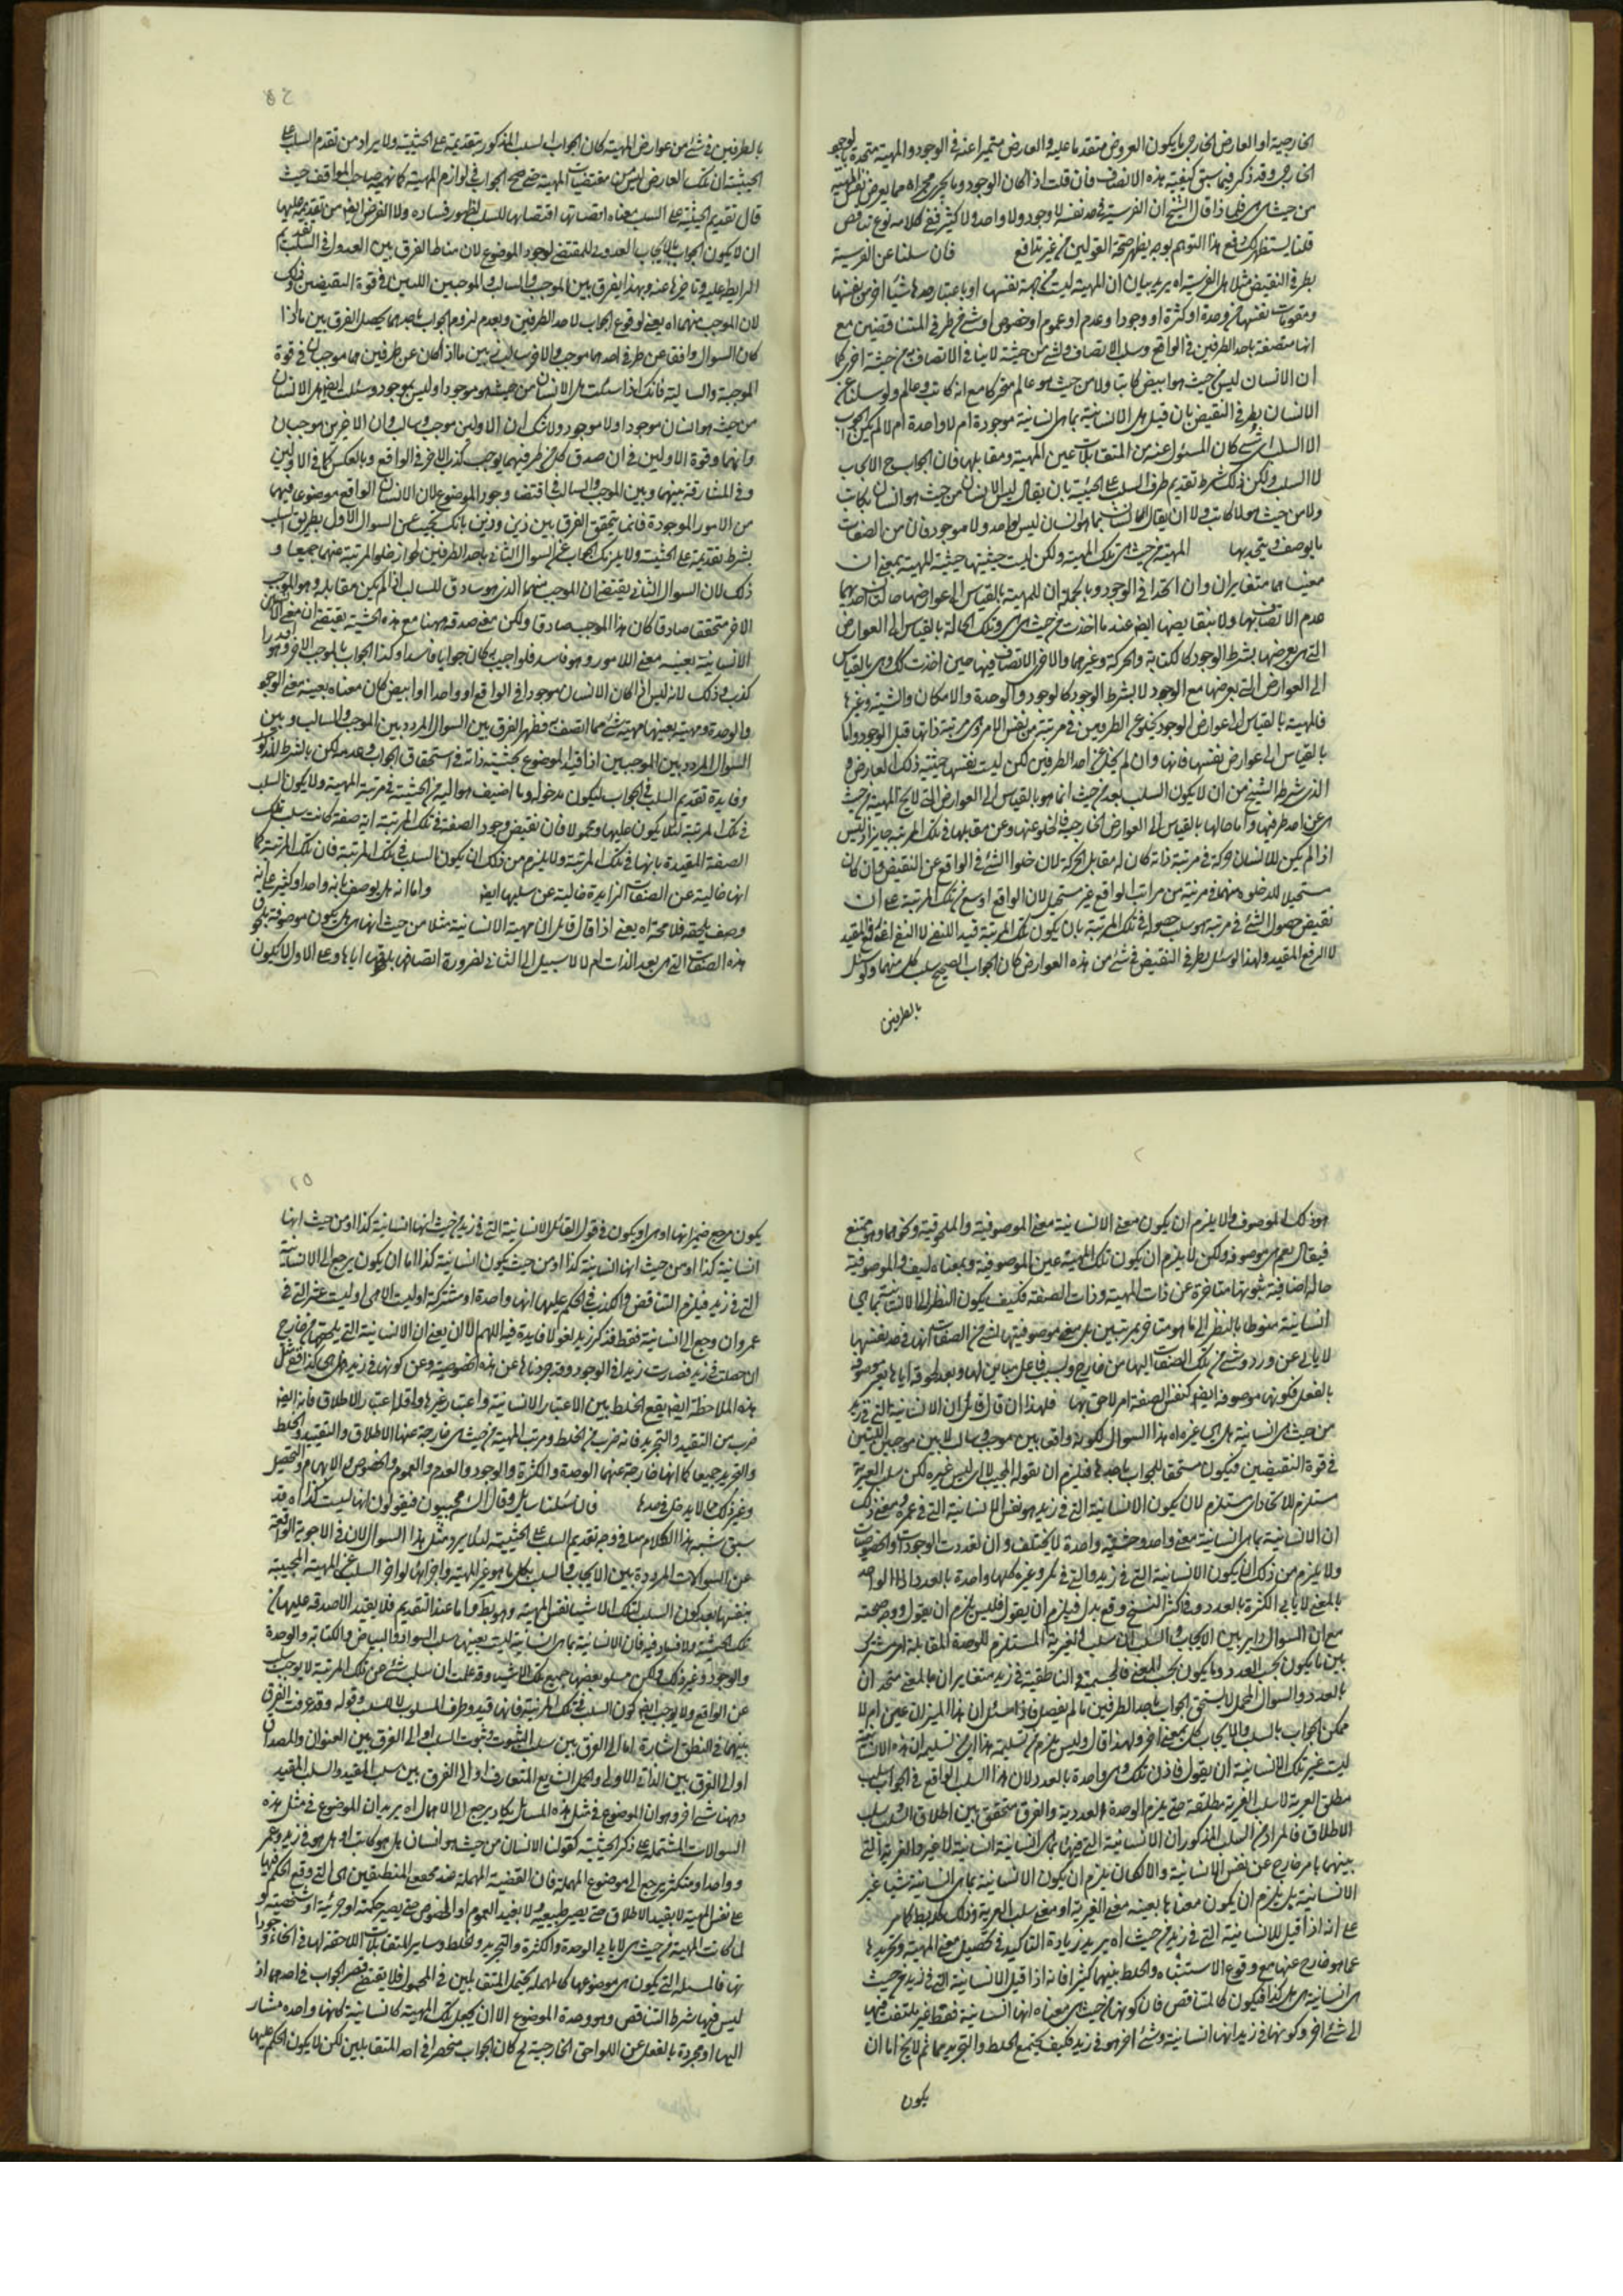 الخارجية او العارض الخارجى ما يكون العروض متقدما عليه والعارض متميزا عنه فى الوجود والمهية متحدة بالوجود
الخارجى وقد ذكر فيما سبق كيفية هذه الاتصاف فان قلت اذا كان الوجود وما يجرى مجراه مما يعرض نفس المهية
من حيث هى هى فلماذا قال الشيخ ان الفرسية فى حد نفسه لا وجود ولا واحد ولا كثير ففى كلامه نوع تناقض
قلنا يستظهر لك دفع هذا التوهم بوجه يظهر صحة القولين من غير تدافع فان سلنا عن الفرسية
بطرفى النقيض مثلا هل الفرسية اه يريد بيان ان المهية ليست من جهة نفسها او باعتبار حدها شيئا اخر من نفسها
ومقومات نفسها من وحدة او كثرة او وجود او عدم او عموم او خصوص او شئ من طرفى المتناقضين مع
انها متصفة باحد الطرفين فى الواقع وسلب الاتصاف لشئ من حيثية لا ينافى الاتصاف به من حيثية اخرى كما
ان الانسان ليس من حيث هو ابيض كاتبا ولا من حيث هو عالم متحركا مع انه كاتب وعالم ولو سئلنا عن
الانسان بطرفى النقيض بان قيل هل الانسانية بما هى انسانية موجودة ام لا واحدة ام لا لم يكن الجواب
الا السلب لاى شئ كان المسئول عنه من المتقابلات عين المهية ومقابلها فان الجواب ح الايجاب
لا السلب ولكن ذلك بشرط تقديم حرف السلب على الحيثية بان يقال ليس الانسان من حيث هو انسان بكاتب
ولا من حيث هو لا كاتب ولا ان يقال الانسان بما هو انسان ليس بواحد ولا موجود فان من الصفات
ما يوصف ويتحد بها المهية من حيث هى تلك المهية ولكن ليست حيثيتها حيثية للمهية بمعنى ان
معنيهما متغايران وان اتحدا فى الوجود وبالجملة ان للمهية بالقياس الى عوارضها حالتان احديهما
عدم الاتصاف بها ولا بنقايضها ايضا عند ما اخذت من حيث هى هى وتلك الحالة بالقياس الى العوارض
التى يعرضها بشرط الوجود كالكتابة والحركة وغيرهما والاخرى الاتصاف فيها حين اخذت كذلك وهى بالقياس
الى العوارض التى يعرضها مع الوجود لا بشرط الوجود كالوجود والوحدة والامكان والشيئية وغيرها
فالمهية بالقياس الى عوارض الوجود يخلو عن الطرفين فى مرتبة من نفس الامر وهى مرتبة ذاتها قبل الوجود واما
بالقياس الى عوارض نفسها فانها وان لم يخل عن احد الطرفين لكن ليست نفسها حيثية ذلك العارض
الذى شرط الشيخ من ان لا يكون السلب بعد من حيث انما هو بالقياس الى العوارض التى لا يخ المهية من حيث
هى عن احد طرفيها واما حالها بالقياس الى العوارض الخارجية فالخلو عنها وعن مقابلها فى تلك المرتبة جايز اذ ليس
اذا لم يكن للانسان حركة فى مرتبة ذاته كان له مقابل الحركة لان خلو الشئ فى الواقع عن النقيض وان كان
مستحيلا لكن خلوه عنهما فى مرتبة من مراتب الواقع غير مستحيل لان الواقع اوسع من تلك المرتبة على ان
نقيض حصول الشئ فى مرتبة هو سلب حصوله فى تلك المرتبة بان يكون تلك المرتبة قيدا للمنفى لا النفى اعنى رفع المقيد
لا الرفع المقيد ولهذا لو سئل بطرفى النقيض فى شئ من هذه العوارض كان الجواب الصحيح سلب كل منهما ولو سئل
بالطرفين
بالطرفين فى شئ من عوارض المهية كان الجواب السلب المذكور متقدمة على الحيثية ولا يراد من تقدم السلب على
الحيثية ان تلك العارض ليس من مقتضيات المهية حتى صح الجواب فى لوازم المهية كما فهمه صاحب المواقف حيث
قال تقديم الحيثية على السلب معناه اقتضائها للسلب لظهور فساده ولا الغرض ايضا من تقديمه عليها
ان لا يكون الجواب بالايجاب العدولى المقتضى لوجود الموضوع لان مناط الفرق بين العدول والسلب تقديم
الرابط عليه وتاخيرها عنه وبهذا يفرق بين الموجب والسالب والموجبين اللذين فى قوة النقيضين وذلك
لان الموجب منهما اه يعنى لوقوع الجواب لاحد الطرفين وبعدم لزوم الجواب باحدهما يحصل الفرق بين ما اذا
كان السوال واقعا عن طرفى احدهما موجب والاخر سالب وبين ما اذا كان عن طرفين هما موجبان فى قوة
الموجبة والسالبة فانك اذا سئلت هل الانسان من حيث هو موجود او ليس بموجود وسئلت ايضا هل الانسان
من حيث هو انسان موجود او لا موجود ولا شك ان الاولين موجب وسالب وان الاخيرين موجبان
وانهما فى قوة الاولين فى ان صدق كل من طرفيهما يوجب كذب الاخر فى الواقع وبالعكس كما فى الاولين
وفى المشاركة بينهما وبين الموجب والسالب فى اقتضاء وجود الموضوع لان الانسان الواقع موضوعا فيهما
من الامور الموجودة فانما يتحقق الفرق بين ذين وذين بانك تجيب عن السوال الاول بطريق السلب
بشرط تقديمه على الحيثية ولا يلزمك الجواب عن السوال الثانى باحد الطرفين لجواز خلو المرتبة عنهما جميعا و
ذلك لان السوال الثانى يقتضى ان الموجب منهما الذى هو سادق للسالب اذا لم يكن مقابله وهو الموجب
الاخر متحققا صادقا كان هذا الموجب صادقا ولكن معنى صدقه ههنا مع هذه الحيثية يقتضى ان معنى
الانسانية بعينه معنى اللامور وهو فاسد فلو اجيب به كان جوابا فاسدا وكذا الجواب بالموجب الاخر وهو
كذب وذلك لانه ليس اذا كان الانسان موجودا فى الواقع او واحدا او ابيض كان معناه بعينه معنى الوجود
والوحدة ومهية بعينها مهية شئ مما اتصف به فظهر الفرق بين السوال المردد بين الموجب والسالب وبين
السوال المردد بين الموجبين اذا قيد الموضوع بحيثية ذاته فى استحقاق الجواب وعدمه لكن بالشرط المذكور
وفايدة تقديم السلب فى الجواب ليكون مدخوله وما اضيف هو اليه من الحيثية فى مرتبة المهية ولا يكون السلب
فى تلك المرتبة لئلا يكون عليها ومحمولا فان نقيض وجود الصفة فى تلك المرتبة اية صفة كانت سلب تلك
الصفة المقيدة بانها فى تلك المرتبة ولا يلزم من ذلك ان يكون السلب فى تلك المرتبة فان تلك المرتبة كما
انها خالية عن الصفات الزايدة خالية عن سلبها ايضا واما انه هل يوصف بانه واحد او كثير على انه
وصف يلحقه فلا محة اه يعنى اذا قال قائل ان مهية الانسانية مثلا من حيث انها هى هل يكون موصوفة بلحوق
هذه الصفات التى هى بعد الذات ام لا لا سبيل الى الثانى لضرورة اتصافها بلحوقها اياها وعلى الاول لا يكون
هو ذلك الموصوف ولا يلزم ان يكون معنى الانسانية معنى الموصوفية والملحوقية ونحوهما وهو ممتنع
فيقال نعم هى موصوفة ولكن لا يلزم ان يكون تلك المهية عين الموصوفية وبمعناه ليف والموصوفية
حالة اضافية ثبوتها متاخرة عن ذات المهية وذات الصفة فكيف يكون النظر الى الانسانية بما هى
انسانية منوطا بالنظر الى ما هو متاخر بمرتبتين بل معنى موصوفيتها لشئ من الصفات انها فى حد نفسها
لا يابى عن ورود شئ من تلك الصفات اليها من خارج وبسبب فاعل مباين لها وبعد لحوقه اياها يصير موصوفة
بالفعل فكونها موصوفة ايضا كنفس الصفة امر لاحق بها فلهذا ان قال قائل ان الانسانية التى فى زيد
من حيث هى انسانية هل هى غير اه هذا السوال لكونه واقعا بين موجب وسالب لا بين موجبين اللذين
فى قوة النقيضين فيكون مستحقا للجواب باحدهما فيلزم ان يقول المجيب لا اى ليس غيره لكن سلب الغيرية
مستلزم للاتحاد اى مستلزم لان يكون الانسانية التى فى زيد هو نفس الانسانية التى فى عمرو ومعنى ذلك
ان الانسانية بما هى انسانية معنى واحد وحقيقة واحدة لا يختلف وان تعددت الوجودات والخصوصيات
ولا يلزم من ذلك ان يكون الانسانية التى فى زيد والتى فى بكر وغيره كلها واحدة بالعدد اذ الواحد
بالمعنى لا يابى الكثرة بالعدد وفى اكثر النسخ وقع بدل فيلزم ان يقول فليس يلزم ان يقول ووجه صحته
مع ان السوال داير بين الايجاب والسلب ان سلب الغيرية المستلزم للوحدة المقابلة امر مشترك
بين ما يكون بحسب العدد وما يكون بحسب المعنى فالجسمية والناطقية فى زيد متغايران بالمعنى متحدان
بالعدد والسوال المجمل لا يستحق الجواب باحد الطرفين ما لم يفصل فاذا سئل ان هذا المميز ان عين ام لا
ممكن الجواب بالسلب والايجاب كل بمعنى اخر ولهذا قال وليس يلزم من تسليمه هذا اى من تسليمه ان هذه الانسانية
ليست غير تلك الانسانية ان يقول فاذن تلك وهى واحدة بالعدد لان هذا السلب الواقع فى الجواب سلب
مطلق الغيرية لا سلب الغيرية مطلقة حتى يلزم الوحدة العددية والفرق متحقق بين اطلاق السلب وسلب
الاطلاق فالمراد من السلب المذكور ان الانسانية التى فيهما بما هى انسانية انسانية لا غير والغيرية التى
بينهما بامر خارج عن نفس الانسانية والا لكان يلزم ان يكون الانسانية بما هى انسانية شيئا غير
الانسانية بل يلزم ان يكون معناها بعينه معنى الغيرية او معنى سلب الغيرية وذلك بط كما مر
على انه اذا قيل للانسانية التى فى زيد من حيث اه يريد زيادة التاكيد فى تحصيل معنى المهية وتجريدها
عما هو خارج عنها مع وقوع الاستثناء والخلط بينهما كثيرا فانه اذا قيل الانسانية التى فى زيد من حيث
هى انسانية هى هل كذا فيكون كالمتناقض فان كونها من حيث هى معناه انها انسانية فقط غير ملتفت فيها
الى شئ اخر وكونها فى زيد انها انسانية وشئ اخر هو فى زيد فكيف يجتمع الخلط والتجريد معا ثم لا يخ اما ان
يكون
يكون مرجع ضميرانها او هى او يكون فى قول القائل الانسانية التى فى زيد من حيث انها انسانية كذا او من حيث انها
انسانية كذا او من حيث انها انسانية كذا او من حيث يكون انسانية كذا اما ان يكون يرجع الى الانسانية
التى فى زيد فيلزم التناقض والكذب فى الحكم عليها انها واحدة او مشتركة او ليست الا هى او ليست غير التى فى
عمرو ان رجع الى انسانية فقط فذكر زيد لغو لا فايدة فيه اللهم الا ان يعنى ان الانسانية التى يلحقها من خارج
ان حصلت فى زيد فصارت زيدا فى الوجود وقد جردناها عن هذه الخصوصية وعن كونها فى زيد هل هى كذا ففى مثل
هذه الملاحظة ايضا يقع الخلط بين الاعتبار الانسانية واعتبار غيرها واقل اعتبار الاطلاق فانه ايضا
ضرب من التقييد والتجريد فانه ضرب من الخلط ومرتبة المهية من حيث هى خارجة عنها الاطلاق والتقييد والخلط
والتجريد جميعا كما انها خارجة عنها الوحدة والكثرة والوجود والعدم والعموم والخصوص والابهام والتحصيل
وغير ذلك مما لا يدخل فى حدها فان سئلنا سايل وقال الستم تجيبون فتقولون انها ليست كذا اه قد
سبق شبه هذا الكلام منا فى وجه تقديم السلب على الحيثية لئلا يرد مثل هذا السوال لان فى الاجوبة الواقعة
عن السوالات المرددة بين الايجاب والسلب بكل ما هو غير المهية واجزائها لو اخر السلب عن المهية المجيبة
بنفسها بعد كون السلب لتلك الاشياء نفس المهية وهو بط واما عند التقديم فلا يفيد الا صدقه عليها من
تلك الحيثية ولا فساد فيه فان الانسانية بما هى انسانية ليست بعينها سلب السواد والبياض والكتابة والوحدة
والوجود وغير ذلك ولكن مسلوب عنها جميع تلك الاشياء وقد علمت ان سلب شئ عن تلك المرتبة لا يوجب سلبه
عن الواقع ولا يوجب ايضا كون السلب فى تلك المرتبة فانها قيد وطرف للمسلوب لا للسلب وقوله وقد عرفت الفرق
بينهما فى المنطق اشارة اما الى الفرق بين سلب الثبوت وثبوت السلب او الى الفرق بين العنوان والمصداق
او الى الفرق بين الذاتى الاولى والحمل الشايع المتعارف او الى الفرق بين سلب المقيد والسلب المقيد
وههنا شئ اخر وهو ان الموضوع فى مثل هذه المسائل يكاد يرجع الى الاهمال اه يريد ان الموضوع فى مثل هذه
السوالات المشتملة على ذكر الحيثية كقولك الانسان من حيث هو انسان هل هو كاتب او هل هو فى زيد وعمرو
وواحد او متكثر يرجع الى موضوع المهملة فان القضية المهملة عند محققى المنطقيين هى التى وقع الحكم فيها
على نفس المهية لا بقيد الاطلاق حتى يصير طبيعية ولا بقيد العموم او الخصوص حتى يصير كلية او جزئية او شخصية و
لما كانت المهية من حيث هى لا يابى الوحدة والكثرة والتجريد والخلط وساير المتقابلات اللاحقة لها فى انحاء وجوداتها
فالمسئلة التى يكون هى موضوعها كالمهملة يحتمل المتقابلين فى المحمول فلا يقتضى حصر الجواب فى احدهما اذ
ليس فيها شرط التناقض وهو وحدة الموضوع الا ان يجعل تلك المهية كالانسانية كانها واحدة مشار
اليها او مجردة بالفعل عن اللواحق الخارجية ح كان الجواب منحصرا فى احد المتقابلين لكن لا يكون الحكم عليها